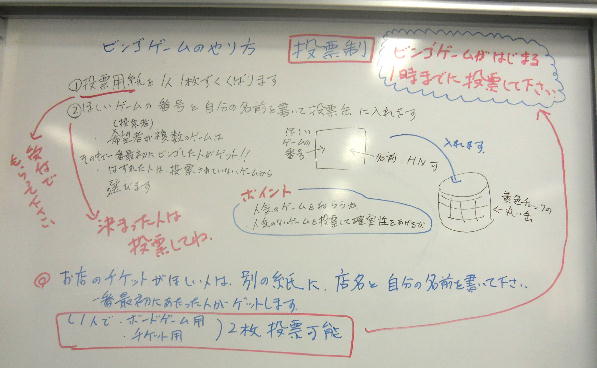 ビンゴゲームのやり方
投票制
ビンゴゲームがはじまる
1時までに投票して下さい
①投票用紙を1人1枚ずつくばります
②ほしいゲームの番号と自分の名前を書いて投票缶に入れます
(投票者)
・希望者が複数のゲームは
その中で一番最初にビンゴした人がゲット!!
・はずれた人は投票されていないゲームから
選びます
ほしい
ゲームの
番号
名前 HN可
入れます
黄色チェックの
丸い缶
もらって下さい
決まった人は
投票してね
ポイント
人気のゲームをねらうか
人気のないゲームを投票して確実性をあげるか
◎お店のチケットがほしい人は、別の紙に、店名と自分の名前を書いて下さい
一番最初にあたった人がゲットします
(1人で・ボードゲーム用
・チケット用
)2枚投票可能